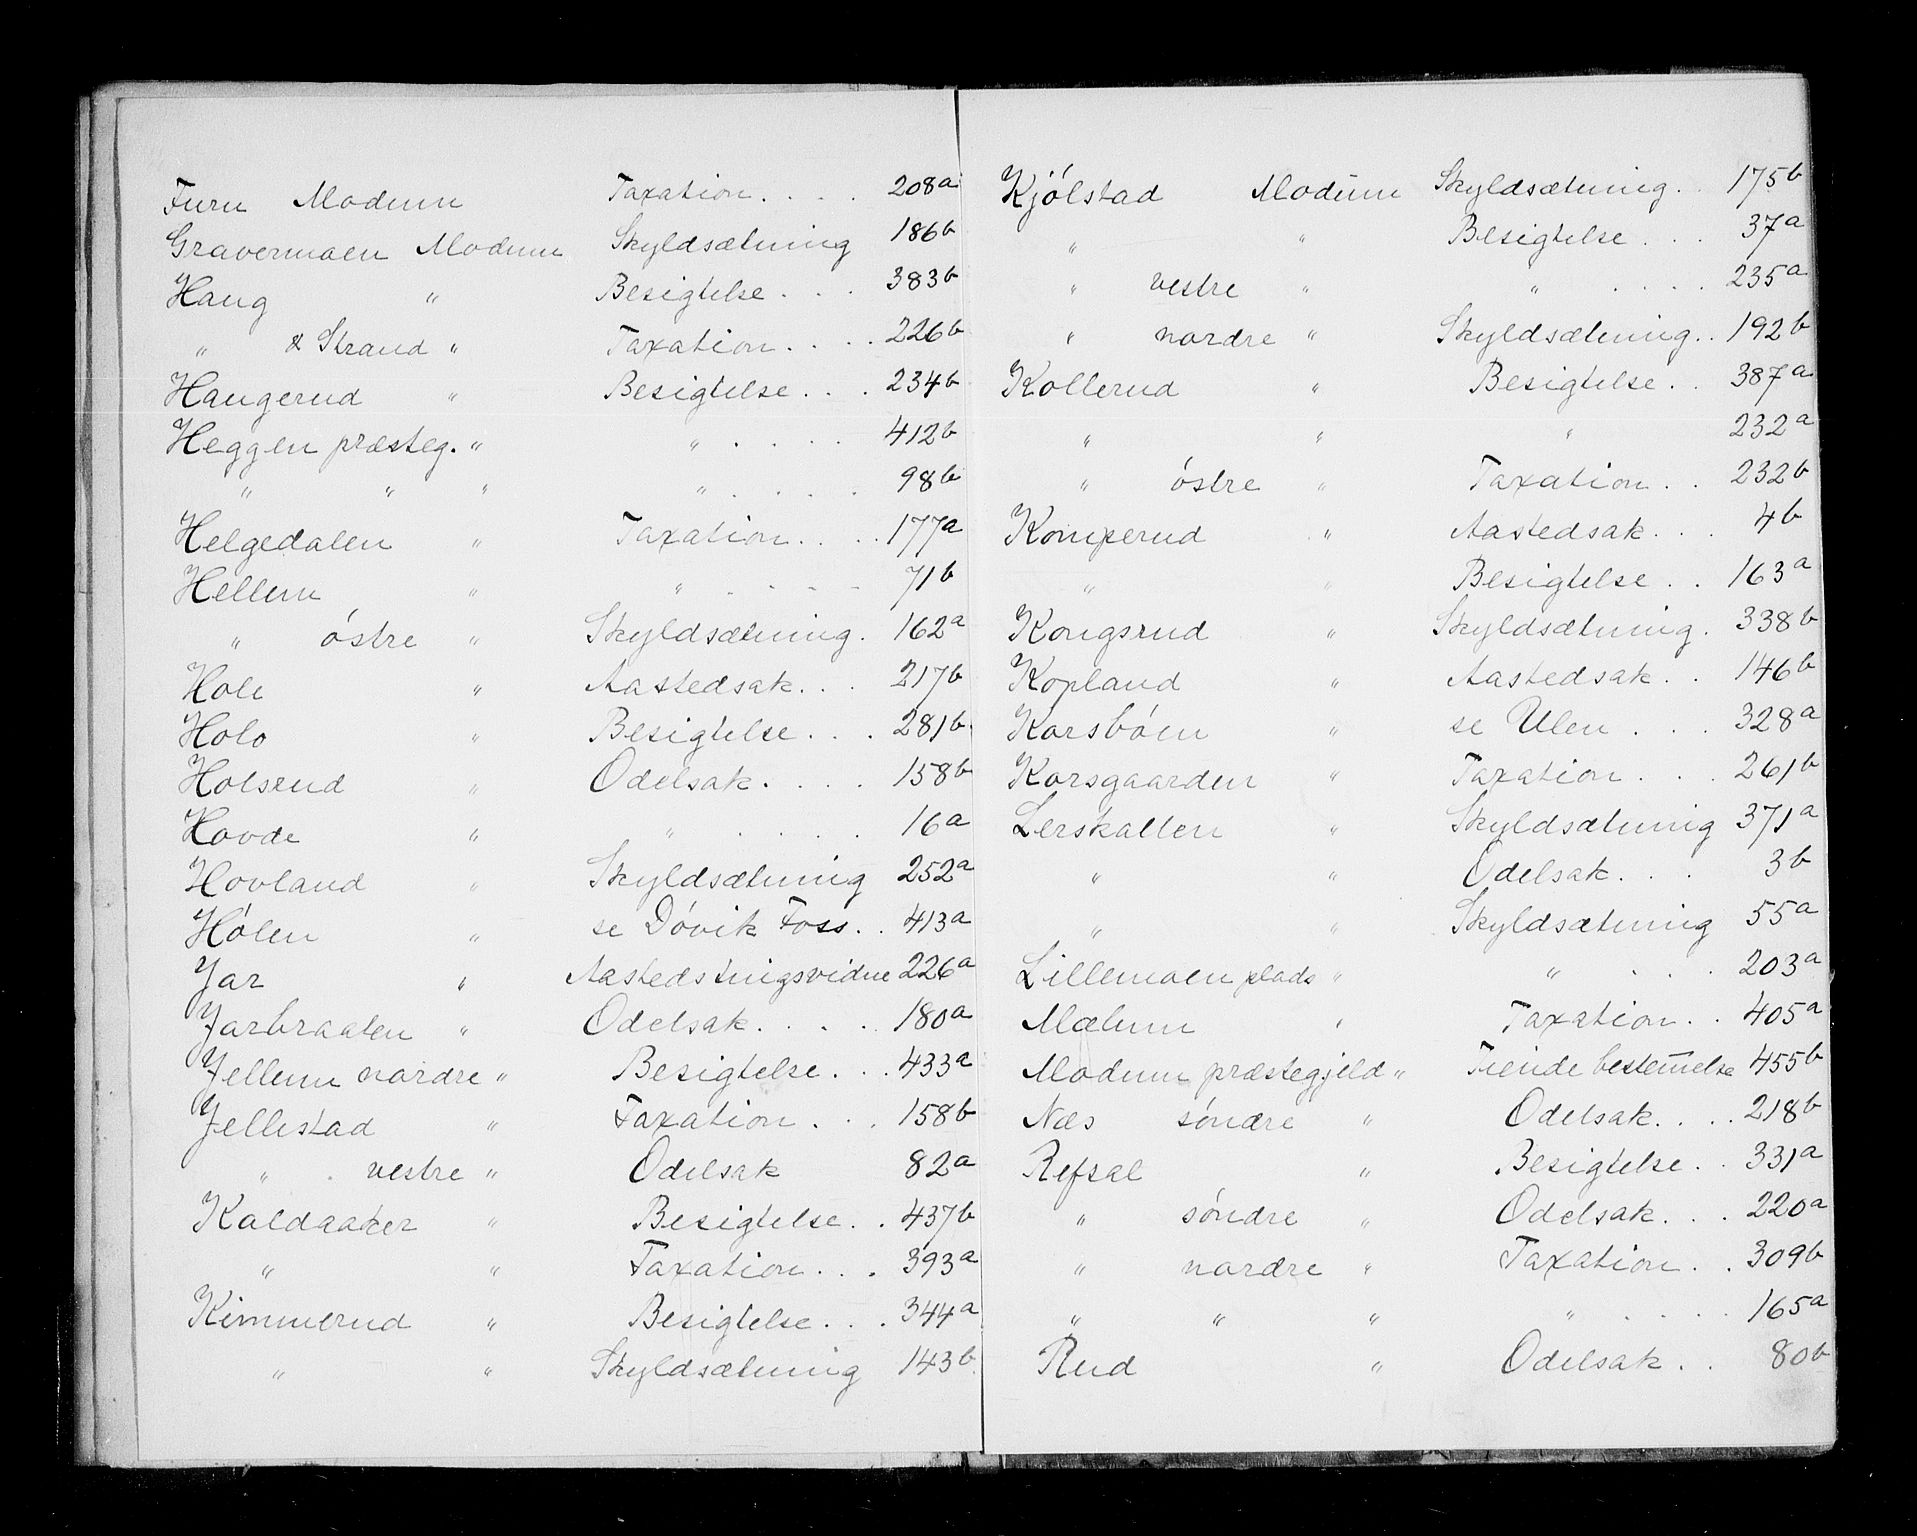 Furu Modum Taxation. . . . 208a
Gravermoen Modum Skyldsætning 186b
Haug " Besigtelse. . . 383b
" & Strand " Taxation. . . . 226b
Haugerud " Besigtelse. . . 234b
Heggen præsteg. " " . . . . 412b
" " " " . . . . 98b
Helgedalen " Taxation. . . . 177a
Hellem " " . - - - 71b
" östre " Skyldsætning. 162a
Hole " Aastedsak. . . 217b
Holo " Besigtelse. . . 281b
Holsrud " Odelsak. . . . 158b
Hovde " " . . . . 16a
Hovland " Skyldsætning 252a
Hölen " se Dövik Foss. . 413a
Jar " Aastedstingsvidne 226a
Jarbraaten " Odelsak. . . . 180a
Jellum nordre " Besigtelse. . . 433a
Jellestad " Taxation . . . 158b
" vestre " Odelsak 82a
Kaldaaker " Besigtelse. . 437b
" " Taxation. . . 393a
Kimmerud " Besigtelse. . . 344a
" " Skyldsætning 143b
Kjölstad Modum Skyldsætning. . 175b
" " Besigtelse. . . 37a
" vestre " " . . . . 235a
" nordre " Skyldsætning. . 192b
Kollerud " Besigtelse. . 387a
" " " 232a
" östre " Taxation. . 232b
Komperud " Aastedsak. . . 4b
" " Besigtelse. . 163a
Kongsrud " Skyldsætning. 338b
Kopland " Aastedsak. . 146b
Korsböen " se Ulen . . . 328a
Korsgaarden " Taxation. . . 261b
Lerskallen " Skyldsætning 371a
" " Odelsak. . . 3b
" " Skyldsætning 55a
Lillemoen plads " " . . . 203a
Mælum " Taxation. . 405a
Modum præstegjeld " Tiende bestemelse 455b
Næs söndre " Odelsak. . . . 218b
Refsal " Besigtelse. . 331a
" söndre " Odelsak. . . 220a
" nordre " Taxation. . . 309b
" " " " . . . . 165a
Rud " Odelsak. . . 80b